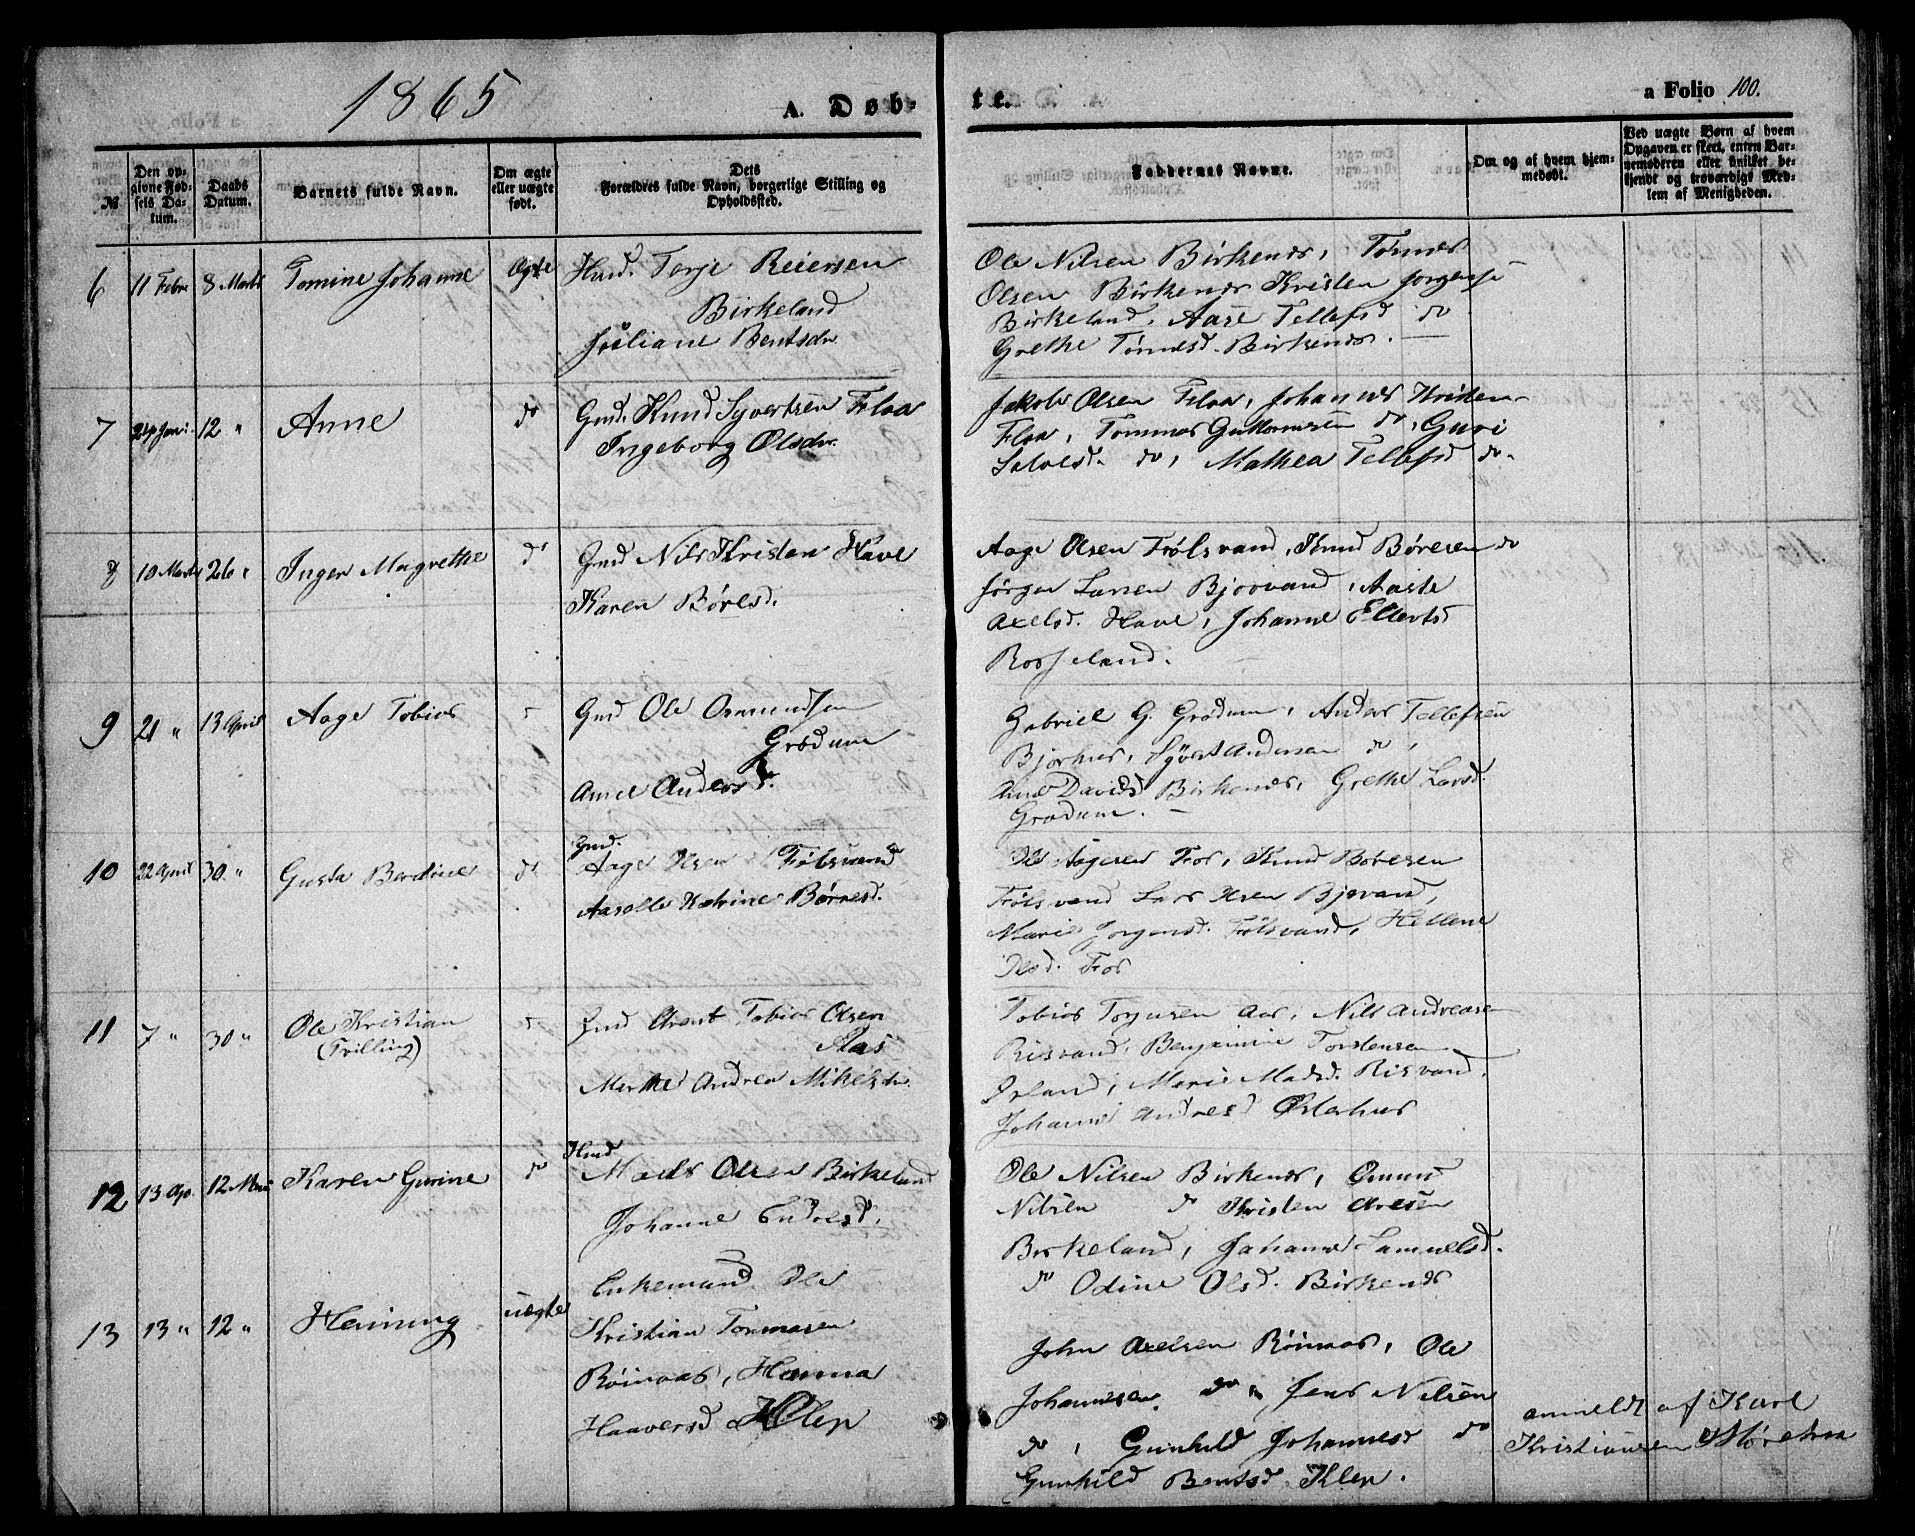 1865
A. Døb-
te.
a Folio 100.
№
Den op-
givne Fød-
sels Da-
tum.
Daabs
Datum.
Barnets fulde Navn.
Om ægte
eller uægte
født.
Dets
Forældres fulde Navn, borgerlige Stilling og
Opholdssted.
Faddernes Navne.
Om og af hvem hjem-
medøbt.
Ved uægte Børn af hvem
Opgaven er skeet, enten Bar-
nemoderen eller hvilket be-
kjendt og troværdigt Med-
lem af Menigheden.
6 11 Febr 8 Marts Tomine Johanne Ægte Husd. Terje Reiersen
Birkeland
Juliane Bentsdr.
Ole Nilsen Birkenes, Tømes
Olsen Birkenes Kristen Jorgense
Birkeland, Aase Tellefsd do
Grethe Tømesd. Birkenes.
7 24 Janr. 12 " Anne do Gmd. Knud Syvertsen Flaa
Ingeborg Olsdr.
Jakob Olsen Flaa, Johannes Kristen-
Flaa, Tommas Guttormsen do, Guri
Salvesd. do, Mathea Tellefsd do.
8 10 Marts 26 " Inger Magrethe do Gmd Nils Kristen Have
Karen Børesd.
Aage Olsen Fölsvand, Knud Børesen do
Jørgen Larsen Bjorvand, Aaste
Axelsd. Have, Johanne Ellevts
Rosseland.
9 21 " 13 April Aage Tobias Gmd Ole Osmundsen
Grødum
Anne Andersd.
Gabriel G. Grødum, Anders Tellefsen
Bjorhus, Syvert Andersen do,
Anne Davidsd Birkenes, Grethe Larsd.
Grødum.
10 22 April 30 " Gusta Berdine do Gmd.
Aage Olsen Fölsvand
Aaselle Katrine Børresd.
Ole Aagesen Fros, Knud Børesen
Fölsvand Lars Olsen Bjorvand,
Marie Jorgensd. Fölsvand, Hellene
Olsd. Fros
11 7 " 30 " Ole Kristian
(Tvilling)
Gmd Arent Tobias Olsen
Aas
Marthe Andrea Mikelsdr.
Tobias Torjusen Aas, Nils Andreasen
Risvand, Benjamin Torstensen
Island, Marie Madsd. Risvand,
Johanne Andresd Østerhus
12 13 Ap. 12 Mai Karen Gurine do Husd
Mads Olsen Birkeland
Johanne Endresd.
Ole Nilsen Birkenes, Omund
Nilsen do Kristen Aresen
Birkeland, Johanne Samuelsd.
do Odine Olsd. Birkenes
13 13 " 12 " Henning uægte Enkemand Ole
Kristian Tommasen
Röinaas, Hanna
Haaversd Klep
John Axelsen Röinaas, Ole
Johannesen do, Jens Nilsen
do, Gunhild Johannesd do
Gunhild Bentsd Klep.
anmeldt af Karl
Kristiansen Mörehaa